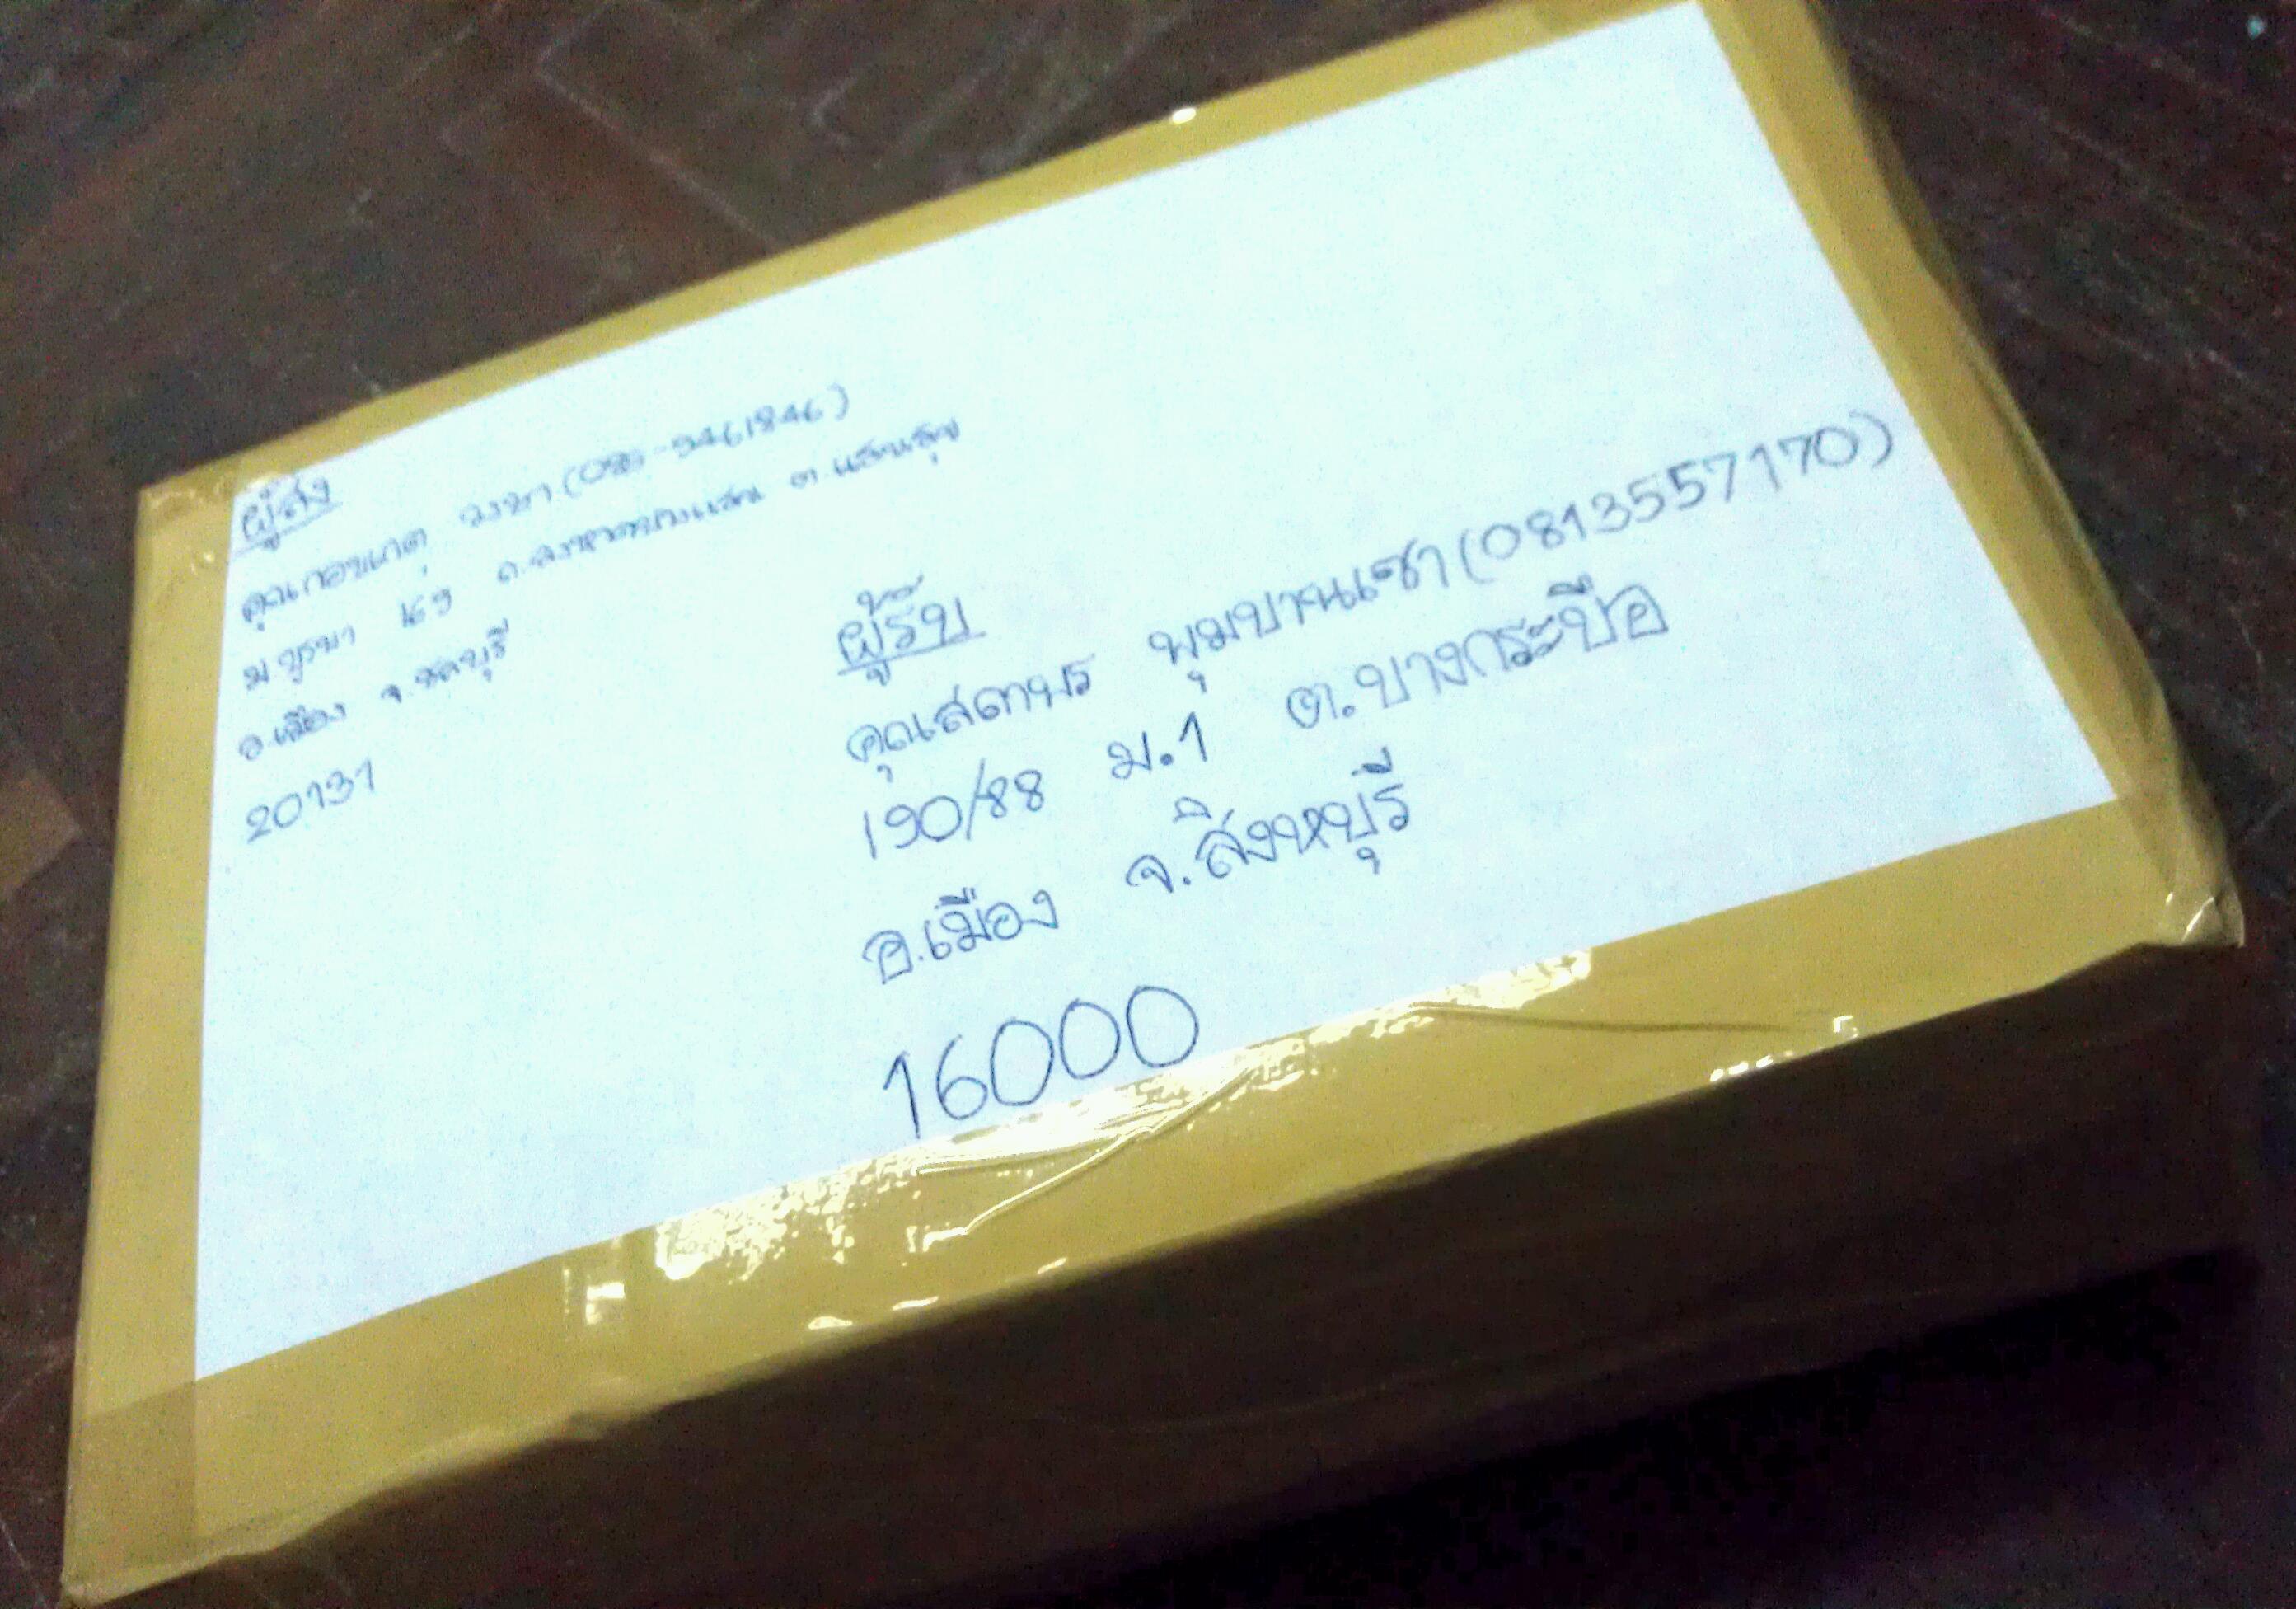 ผู้ส่ง
คุณกอบเกตุ
ม.บูรพา 169 ถ.ลงหาดบางแสน ต.แสนสุข
อ.เมือง จ.ชลบุรี
20131
ผู้รับ
คุณสถาพร พุมบานเชา (0813557170)
190/88 ม.1 ต.บางกระบือ
อ.เมือง จ.สิงหบุรี
16000